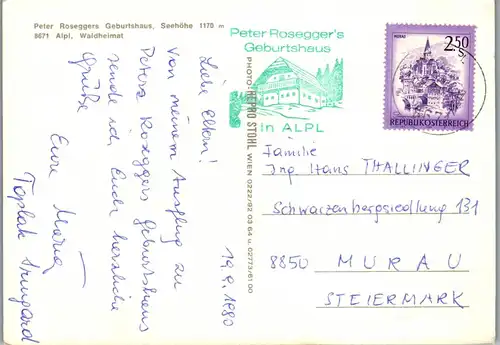 Peter Roseggers Geburtshaus, Seehöhe 1170 m
8671 Alpl, Waldheimat
Liebe Eltern!
Von meinem Ausflug zu
Peter Roseggers Geburtshaus
sende ich Euch herzliche
Grüße
Eure Maria
Toplak Irmgard
19.9.1980
PHOTO: REPRO STOHL WIEN 0222/92 03 64 u. 02773/61 00
Peter Rosegger's
Geburtshaus
in ALPL
MURAU
2.50
S
REPUBLIK ÖSTERREICH
Familie
Ing. Hans THALLINGER
Schwarzenbergsiedlung 131
8850 MURAU
STEIERMARK